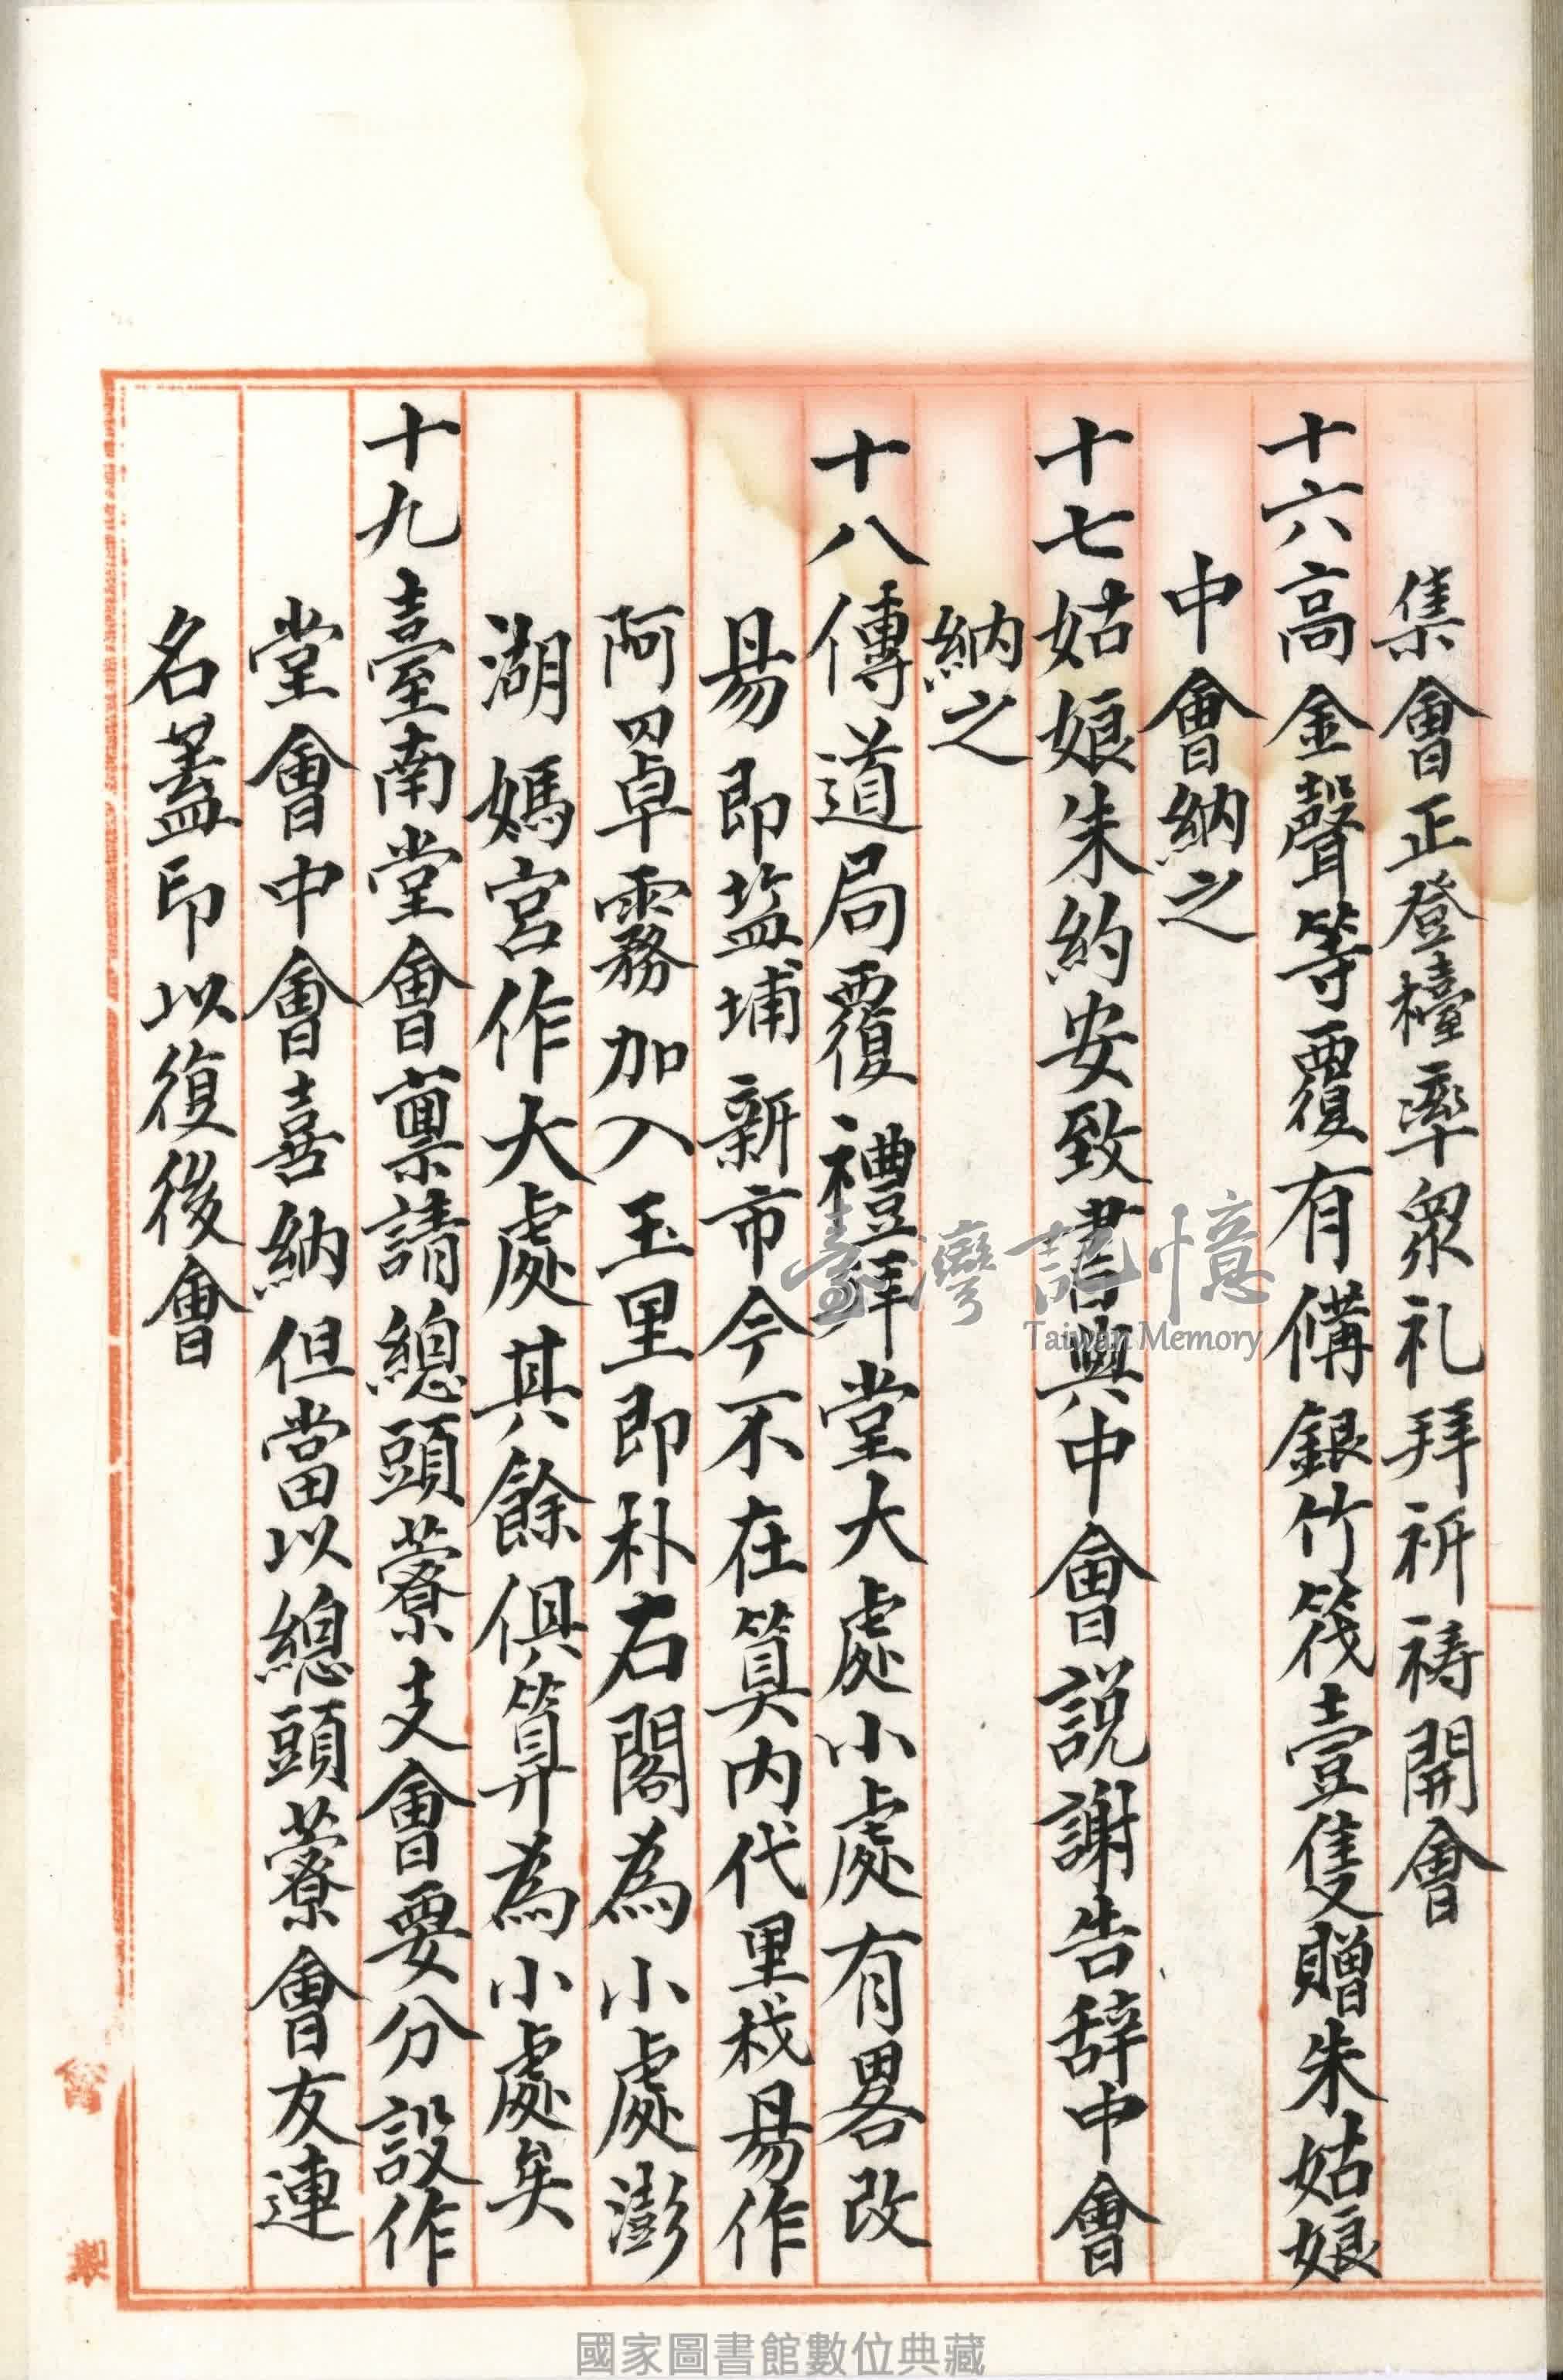 集會正登檯率衆礼拜祈禱開會
十六高金聲等覆有備銀竹筏壹隻贈朱姑娘
中會納之
十七姑娘朱約安致書與中會説謝告辞中會
納之
十八傳道局覆禮拜堂大處小處有畧改
易即盐埔新市今不在算内代里栈易作
阿罩霧加入玉里即朴右閣為小處澎
湖媽宮作大處其餘俱算為小處矣
十九臺南堂會禀請總頭藔支會要分設作
堂會中會喜納但當以總頭藔會友連
名蓋印以復後會
製
臺灣記憶
Taiwan Memory
國家圖書館數位典藏